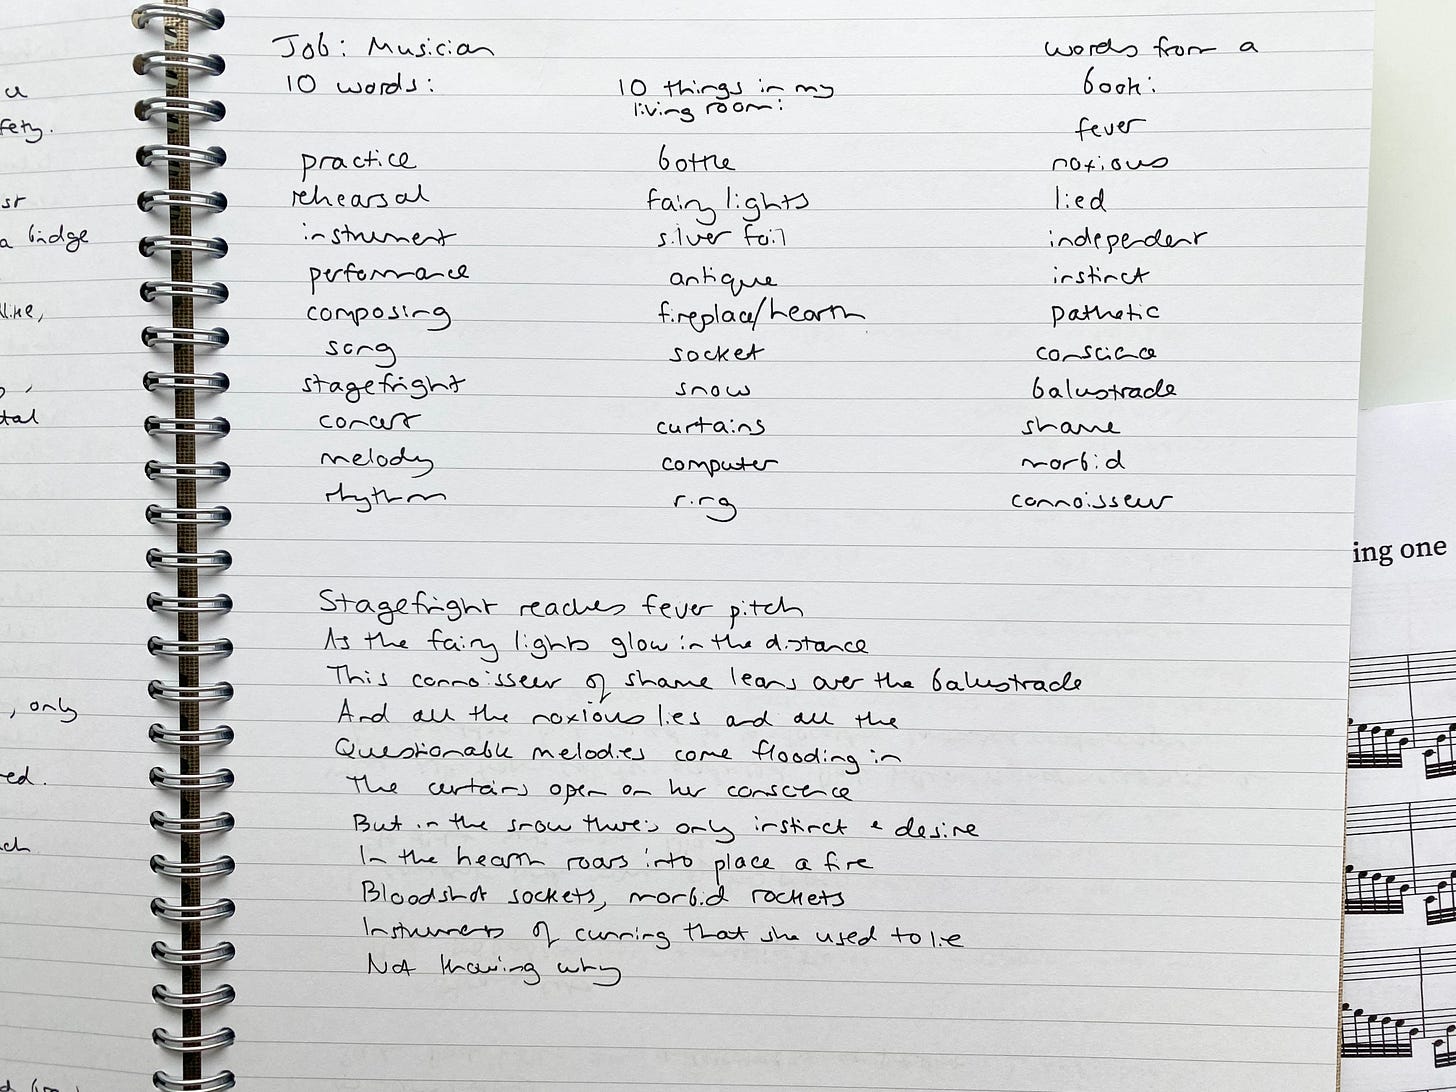 Job: Musician
10 words:
practice
rehearsal
instrument
performance
composing
song
stagefright
concert
melody
rhythm
10 things in my
living room:
bottle
fairy lights
silver foil
antique
fireplace/hearth
socket
snow
curtains
computer
ring
words from a
book:
fever
noxious
lied
independent
instinct
pathetic
conscience
balustrade
shame
morbid
connoisseur
Stagefright reaches fever pitch
As the fairy lights glow in the distance
This connoisseur of shame leans over the balustrade
And all the noxious lies and all the
Questionable melodies come flooding in
The curtains open on her conscience
But in the snow there's only instinct & desire
In the hearth roars into place a fire
Bloodshot sockets, morbid rockets
Instruments of cunning that she used to lie
Not knowing why
a bridge
, only
ing one